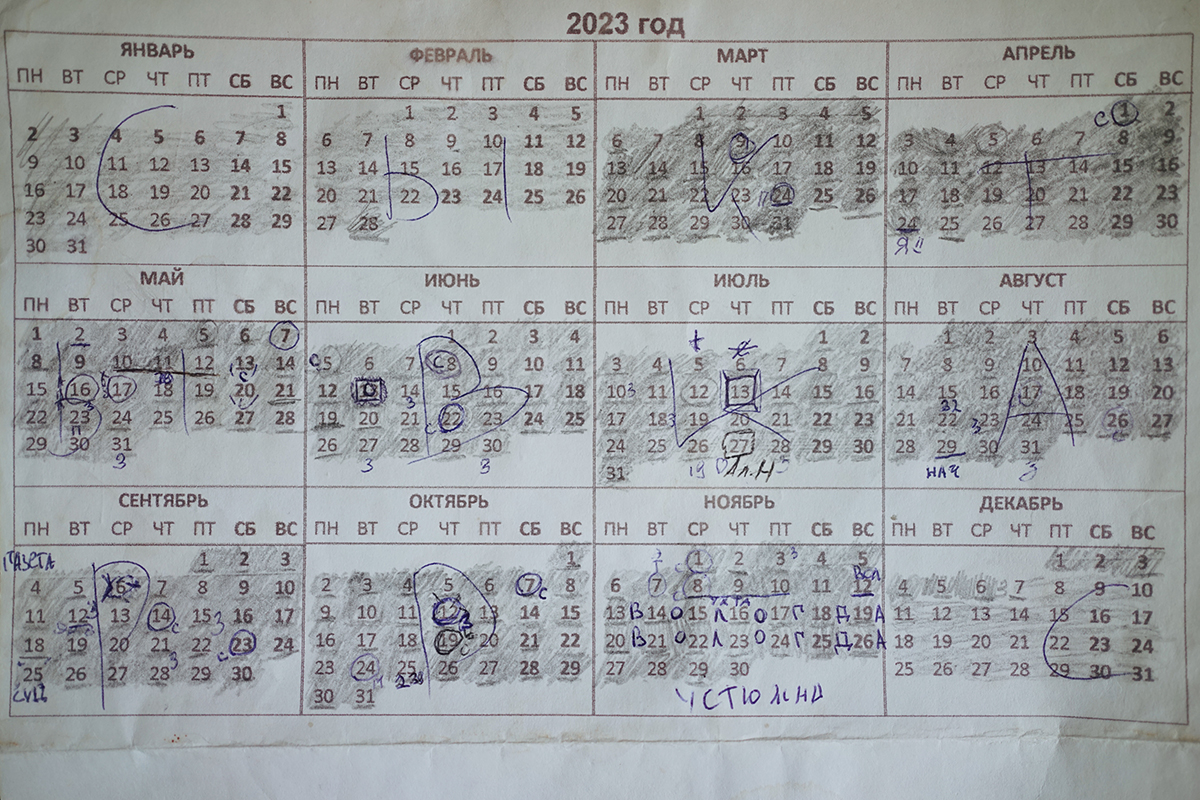 2023 год
ЯНВАРЬ
ПН ВТ СР ЧТ ПТ СБ ВС
1
2 3 4 5 6 7 8
9 10 11 12 13 14 15
16 17 18 19 20 21 22
23 24 25 26 27 28 29
30 31
ФЕВРАЛЬ
ПН ВТ СР ЧТ ПТ СБ ВС
1 2 3 4 5
6 7 8 9 10 11 12
13 14 15 16 17 18 19
20 21 22 23 24 25 26
27 28
Ы
МАРТ
ПН ВТ СР ЧТ ПТ СБ ВС
1 2 3 4 5
6 7 8 9 10 11 12
13 14 15 16 17 18 19
20 21 22 23 24 25 26
27 28 29 30 31
АПРЕЛЬ
ПН ВТ СР ЧТ ПТ СБ ВС
С 1 2
3 4 5 6 7 8 9
10 11 12 13 14 15 16
17 18 19 20 21 22 23
24 25 26 27 28 29 30
Т
МАЙ
ПН ВТ СР ЧТ ПТ СБ ВС
1 2 3 4 5 6 7
8 9 10 11 12 13 14
15 16 17 18 19 20 21
22 23 24 25 26 27 28
29 30 31
З
ИЮНЬ
ПН ВТ СР ЧТ ПТ СБ ВС
1 2 3 4
С 5 6 7 8 9 10 11
12 14 15 16 17 18
19 20 21 22 23 24 25
26 27 28 29 30
З З
Р
ИЮЛЬ
ПН ВТ СР ЧТ ПТ СБ ВС
1 2
3 4 5 6 7 8 9
10 11 12 13 14 15 16
17 18 19 20 21 22 23
24 25 26 27 28 29 30
31
АВГУСТ
ПН ВТ СР ЧТ ПТ СБ ВС
1 2 3 4 5 6
7 8 9 10 11 12 13
14 15 16 17 18 19 20
21 22 23 24 25 26 27
28 29 30 31
НАЧ З
А
СЕНТЯБРЬ
ПН ВТ СР ЧТ ПТ СБ ВС
ГАЗЕТА 1 2 3
4 5 6 7 8 9 10
11 12 13 14 15 16 17
18 19 20 21 22 23 24
25 26 27 28 29 30
Р
ОКТЯБРЬ
ПН ВТ СР ЧТ ПТ СБ ВС
1
2 3 4 5 6 7 8
9 10 11 12 13 14 15
16 17 18 19 20 21 22
23 24 25 26 27 28 29
30 31
Р
НОЯБРЬ
ПН ВТ СР ЧТ ПТ СБ ВС
1 2 3 4 5
6 7 8 9 10 11 12
УХТА
13 В 14 О 15 Л 16 О 17 Г 18 Д 19 А
20 В 21 О 22 Л 23 О 24 Г 25 Д 26 А
27 28 29 30
УСТЮЖНА
ДЕКАБРЬ
ПН ВТ СР ЧТ ПТ СБ ВС
1 2 3
4 5 6 7 8 9 10
11 12 13 14 15 16 17
18 19 20 21 22 23 24
25 26 27 28 29 30 31